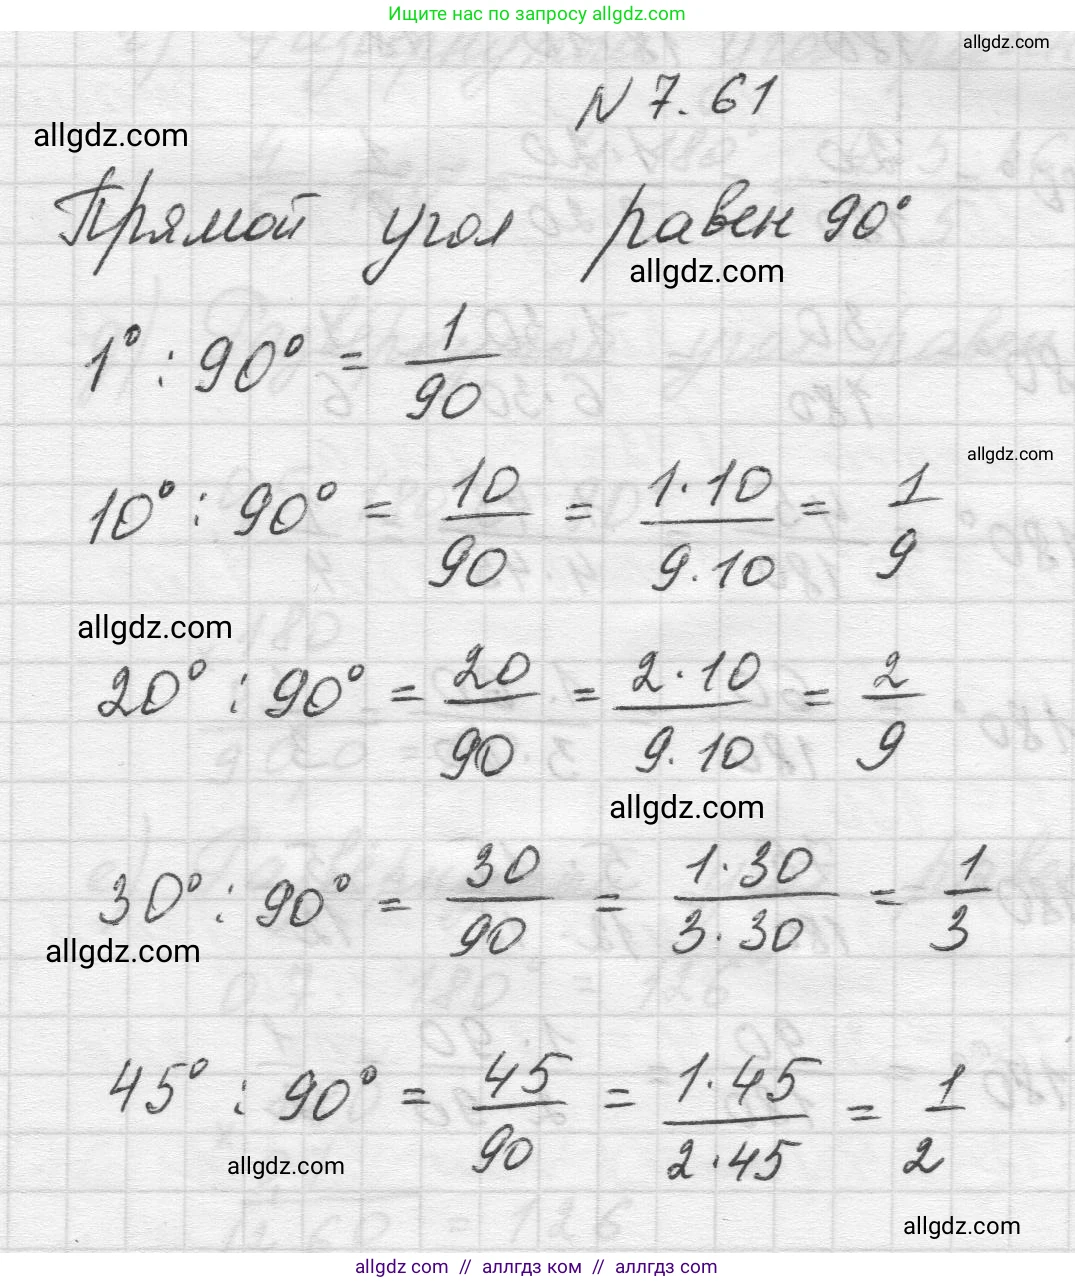 Ищите нас по запросу allgdz.com
allgdz.com
N 7.61
allgdz.com
Прямой угол равен 90°
allgdz.com
1° : 90° = 1/90
allgdz.com
10° : 90° = 10/90 = 1·10/9·10 = 1/9
allgdz.com
20° : 90° = 20/90 = 2·10/9·10 = 2/9
allgdz.com
30° : 90° = 30/90 = 1·30/3·30 = 1/3
allgdz.com
45° : 90° = 45/90 = 1·45/2·45 = 1/2
allgdz.com
allgdz.com
allgdz.com // аллгдз ком // аллгдз.com